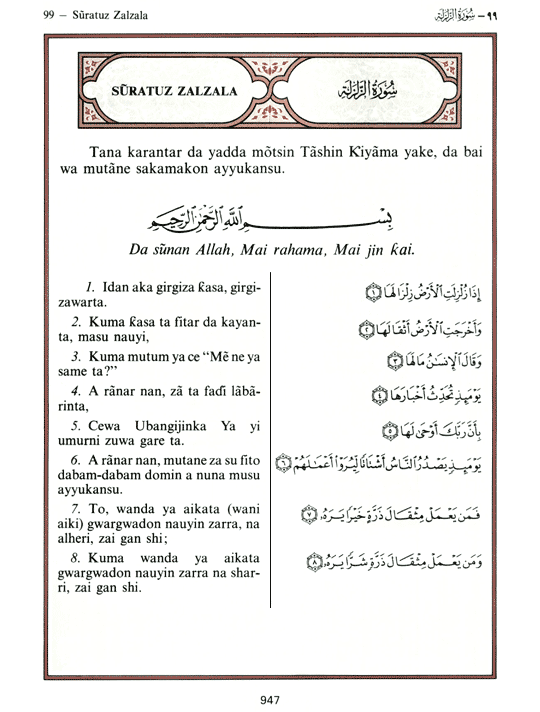 99 – Sūratuz Zalzala
٩٩ – سُورَةُ الزَّلْزَلَةِ
SŪRATUZ ZALZALA
سُورَةُ الزَّلْزَلَةِ
Tana karantar da yadda mōtsin Tāshin Ƙiyāma yake, da bai
wa mutāne sakamakon ayyukansu.
بِسْمِ اللَّهِ الرَّحْمَٰنِ الرَّحِيمِ
Da sūnan Allah, Mai rahama, Mai jin ƙai.
1. Idan aka girgiza ƙasa, girgi-
zawarta.
2. Kuma ƙasa ta fitar da kayan-
ta, masu nauyi,
3. Kuma mutum ya ce “Mē ne ya
same ta?”
4. A rānar nan, zā ta faɗi lābā-
rinta,
5. Cewa Ubangijinka Ya yi
umurni zuwa gare ta.
6. A rānar nan, mutane za su fito
dabam-dabam domin a nuna musu
ayyukansu.
7. To, wanda ya aikata (wani
aiki) gwargwadon nauyin zarra, na
alheri, zai gan shi;
8. Kuma wanda ya aikata
gwargwadon nauyin zarra na shar-
ri, zai gan shi.
إِذَا زُلْزِلَتِ الْأَرْضُ زِلْزَالَهَا ١
وَأَخْرَجَتِ الْأَرْضُ أَثْقَالَهَا ٢
وَقَالَ الْإِنسَٰنُ مَا لَهَا ٣
يَوْمَئِذٍ تُحَدِّثُ أَخْبَارَهَا ٤
بِأَنَّ رَبَّكَ أَوْحَىٰ لَهَا ٥
يَوْمَئِذٍ يَصْدُرُ النَّاسُ أَشْتَاتًا لِّيُرَوْا أَعْمَٰلَهُمْ ٦
فَمَن يَعْمَلْ مِثْقَالَ ذَرَّةٍ خَيْرًا يَرَهُۥ ٧
وَمَن يَعْمَلْ مِثْقَالَ ذَرَّةٍ شَرًّا يَرَهُۥ ٨
947